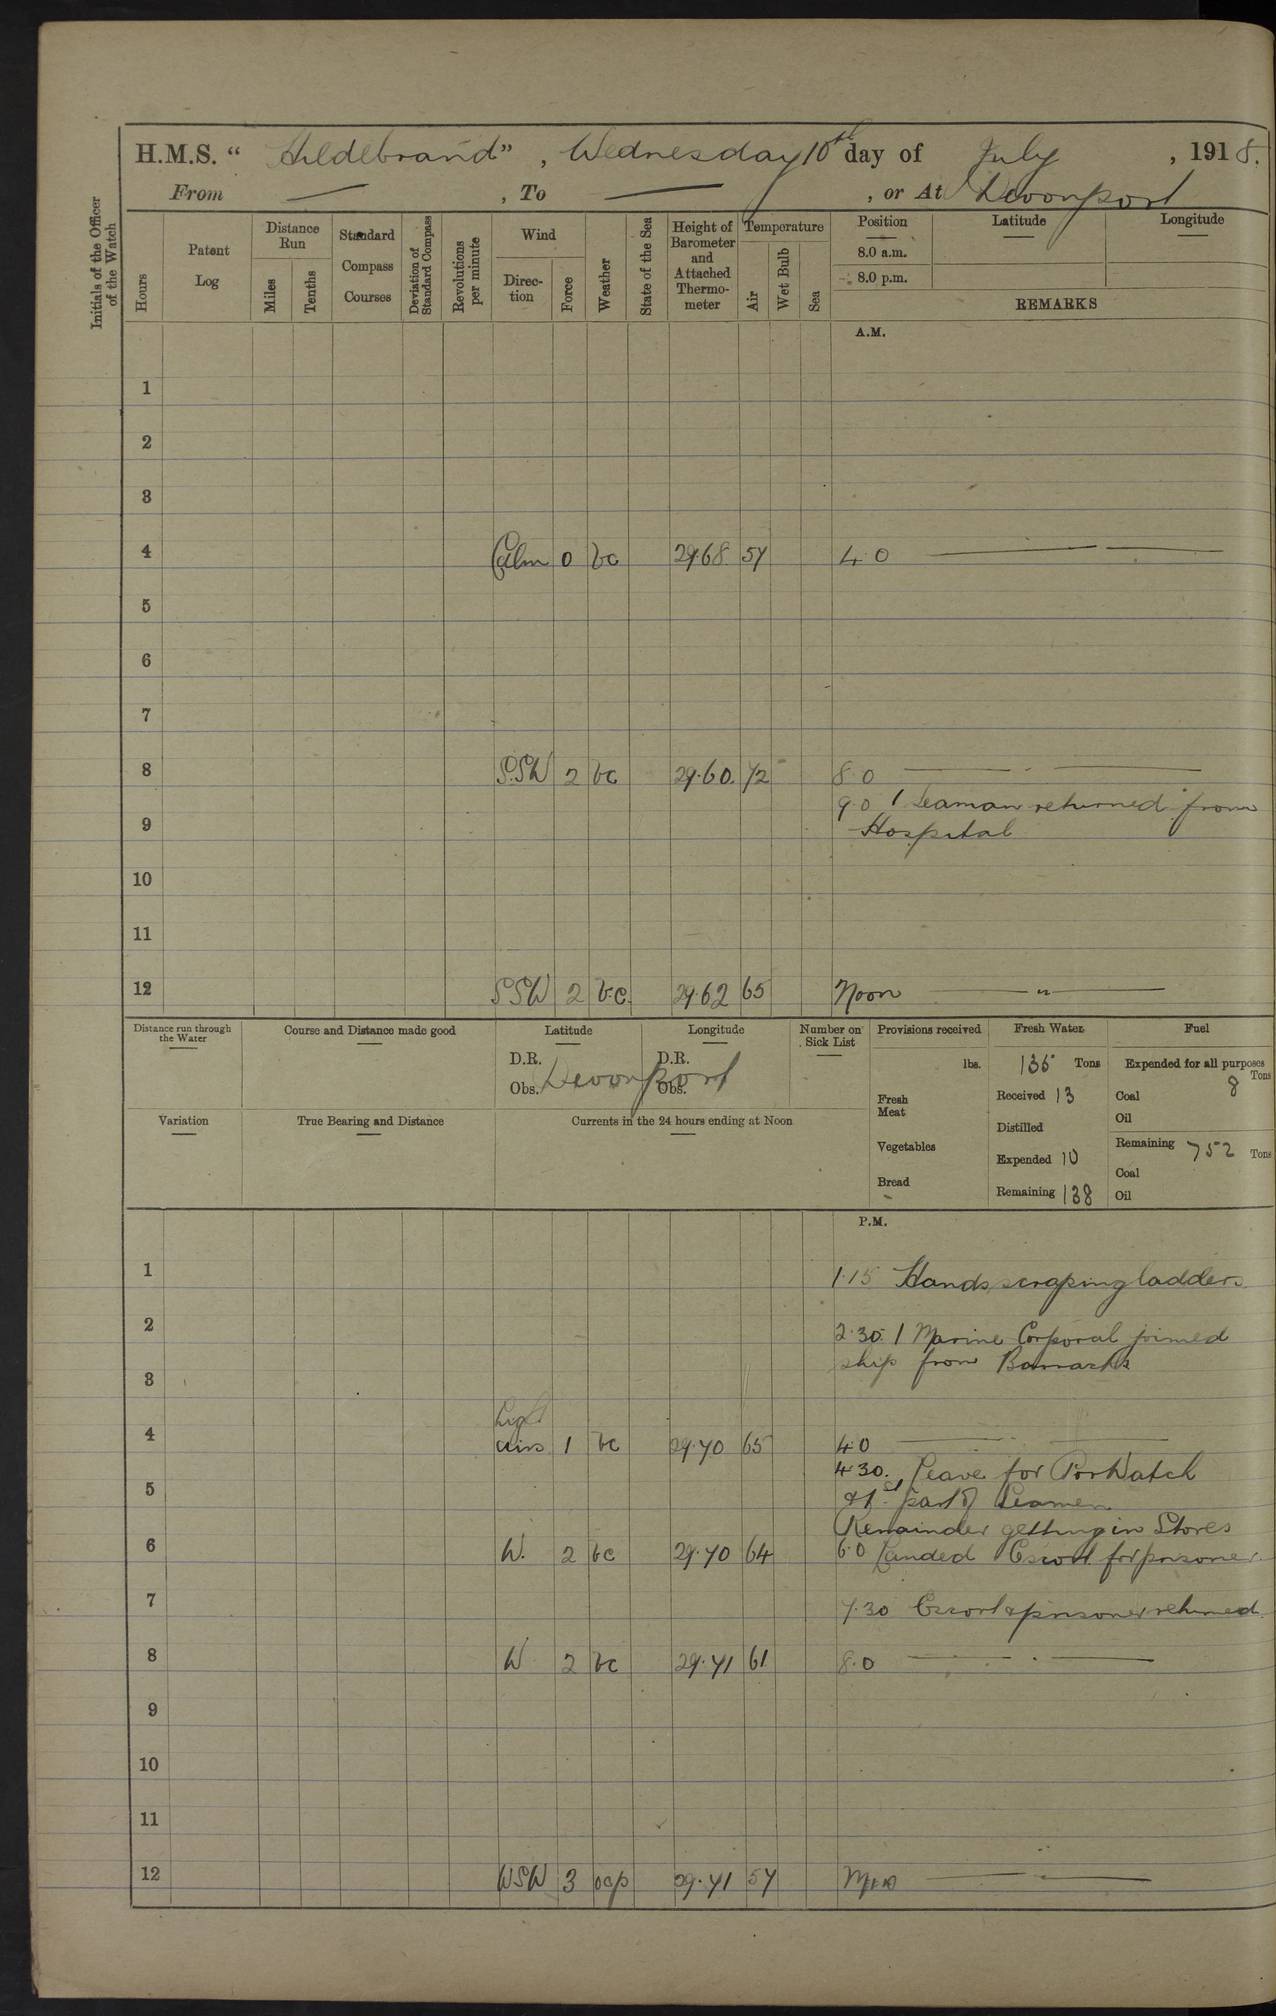 H.M.S. “ Hildebrand” , Wednesday 10th day of July , 1918.
From — , To — , or At Devonport
Initials of the Officer of the Watch
Hours
Patent Log
Distance Run
Miles
Tenths
Standard Compass Courses
Deviation of Standard Compass
Revolutions per minute
Wind
Direc-tion
Force
Weather
State of the Sea
Height of Barometer and Attached Thermo-meter
Temperature
Air
Wet Bulb
Sea
Position
8.0 a.m.
8.0 p.m.
Latitude
Longitude
REMARKS
A.M.
1
2
3
4 Calm 0 bc 29.68 57 4.0 —
5
6
7
8 S.SW 2 bc 29.60. 72 8.0 —
9.0 1 Seaman returned from
9 Hospital
10
11
12 SSW 2 b.c. 29.62 65 Noon — " —
Distance run through the Water
Course and Distance made good
Latitude
D.R.
Obs.
Longitude
D.R.
Obs.
Devonport
Number on Sick List
Provisions received
lbs.
Fresh Meat
Vegetables
Bread
Fresh Water
135 Tons
Received 13
Distilled
Expended 10
Remaining 138
Fuel
Expended for all purposes
Tons
Coal 8
Oil
Remaining 752 Tons
Coal
Oil
Variation
True Bearing and Distance
Currents in the 24 hours ending at Noon
P.M.
1 1.15 Hands scraping ladders
2 2.30. 1 Marine Corporal joined
ship from Barracks
3
Light
4 airs 1 bc 29.70 65 4.0 —
4.30. Leave for Port Watch
5 & 1st part of Seamen
Remainder getting in Stores
6 W. 2 bc 29.70 64 6.0 Landed Escort for prisoner.
7 7.30 Escort & prisoner returned.
8 W 2 bc 29.71 61 8.0 —
9
10
11
12 WSW 3 ocp 29.71 57 —